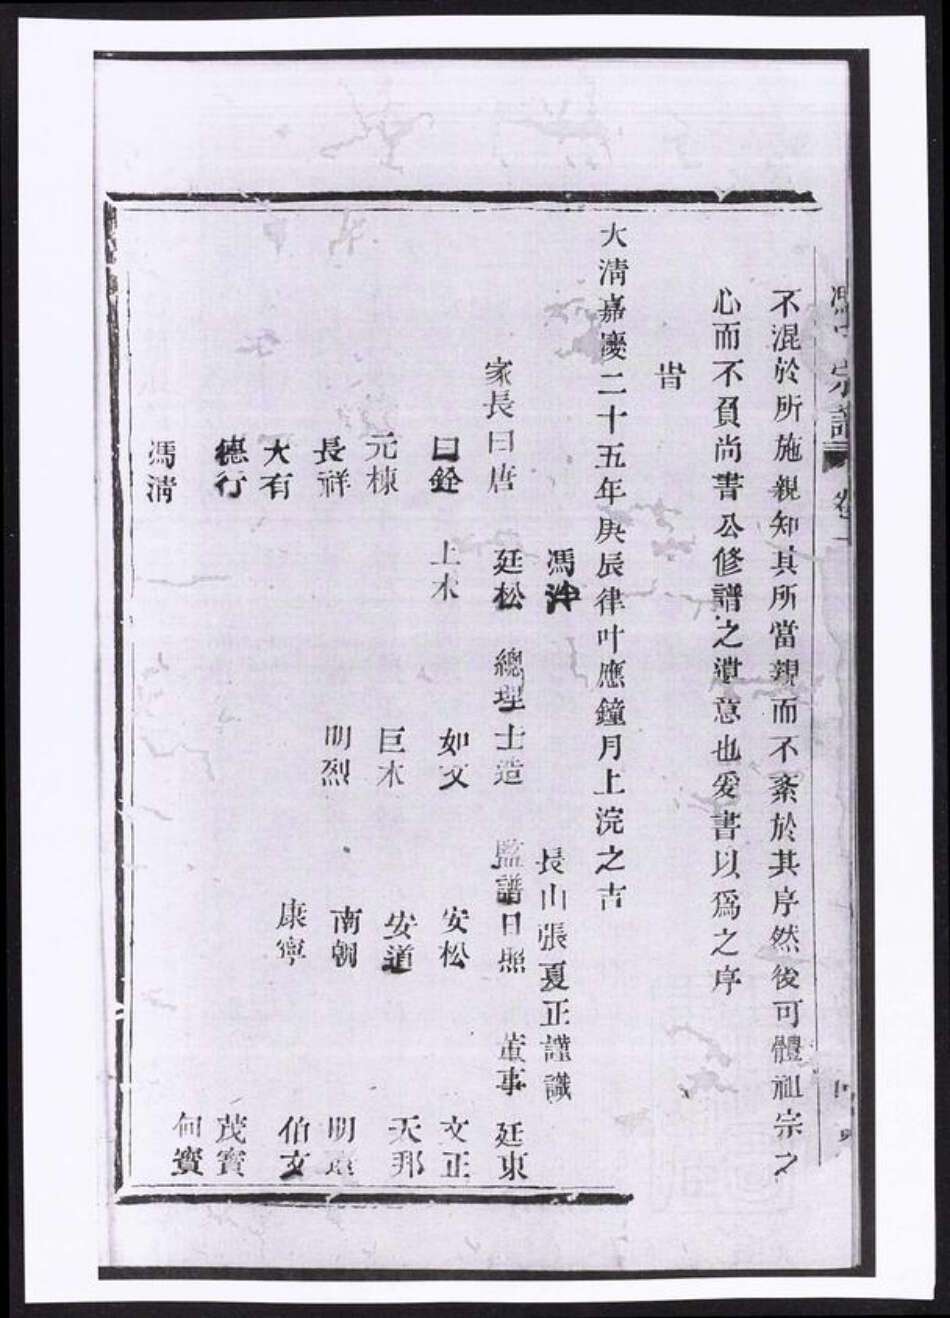 不混於所施親知其所當親而不紊於其序然後可體祖宗之
心而不負尚書公修譜之遺意也爰書以爲之序
旹
大清嘉慶二十五年庚辰律叶應鐘月上浣之吉
長山張夏正謹識
馮沖
家長曰唐 廷松 總理士造 監譜日照 董事 廷東
曰銓 上木 如文 安松 文正
元棟 巨木 安道 天邦
長祥 明烈 南朝 明
大有 康寧 伯玄
德行 茂實
馮清
宗譜 卷一